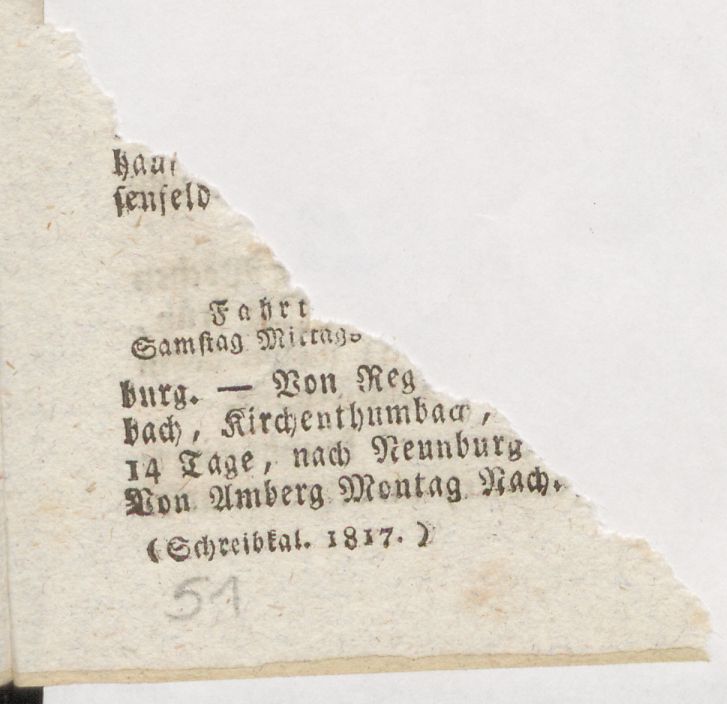 hau
senfeld
Fahrt
Samstag Mittags
burg. — Von Reg
bach, Kirchenthumbach,
14 Tage, nach Neunburg
Von Amberg Montag Nach.
(Schreibkal. 1817.)
51